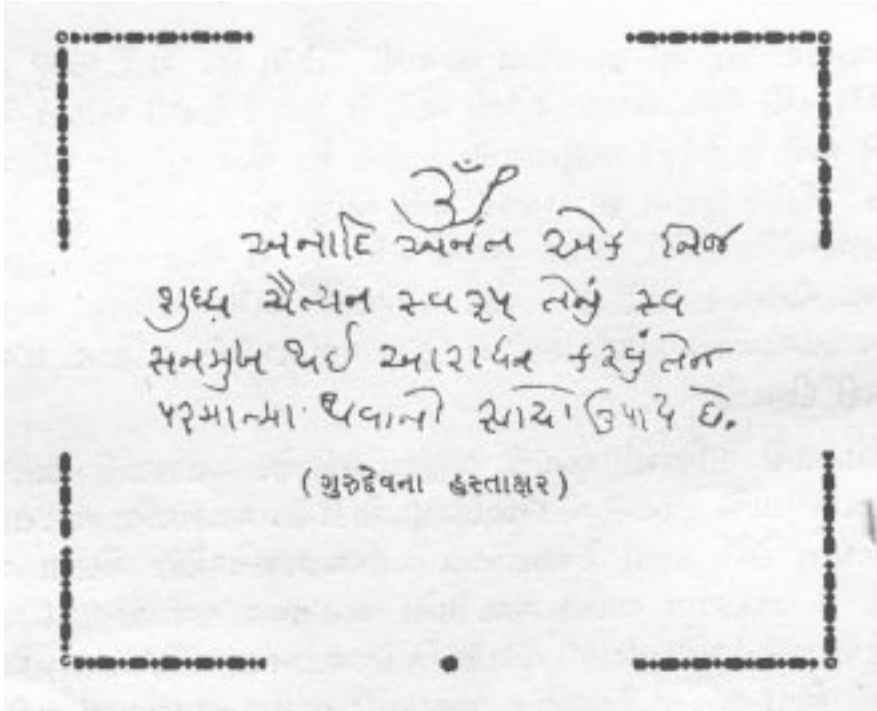 ૐ
અનાદિ અનંત એક નિજ
શુધ્ધ ચૈત્યન સ્વરૂપ તેનું સ્વ
સનમુખ થઈ આરાધન કરવું તેજ
પરમાત્મા થવાનો સાચો ઉપાય છે.
(ગુરુદેવના હસ્તાક્ષર)